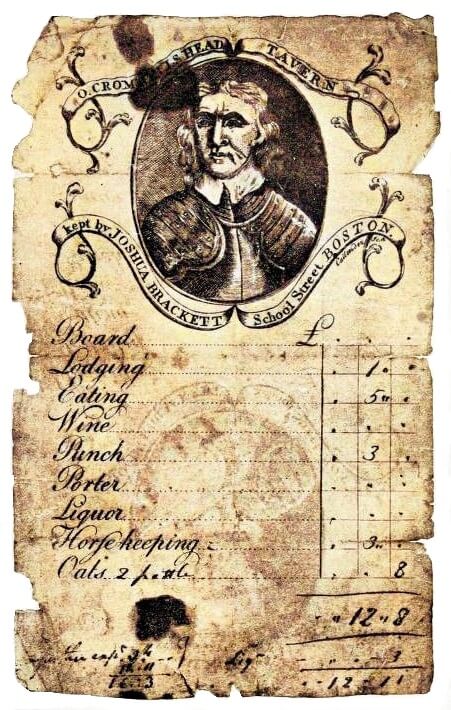 O. CROM S HEAD TAVERN
kept by JOSHUA BRACKETT School Street BOSTON
Board £
Lodging 1
Eating 5
Wine
Punch 3
Porter
Liquor
Horse keeping 3
Oats 2 8
12 8
3
12 11